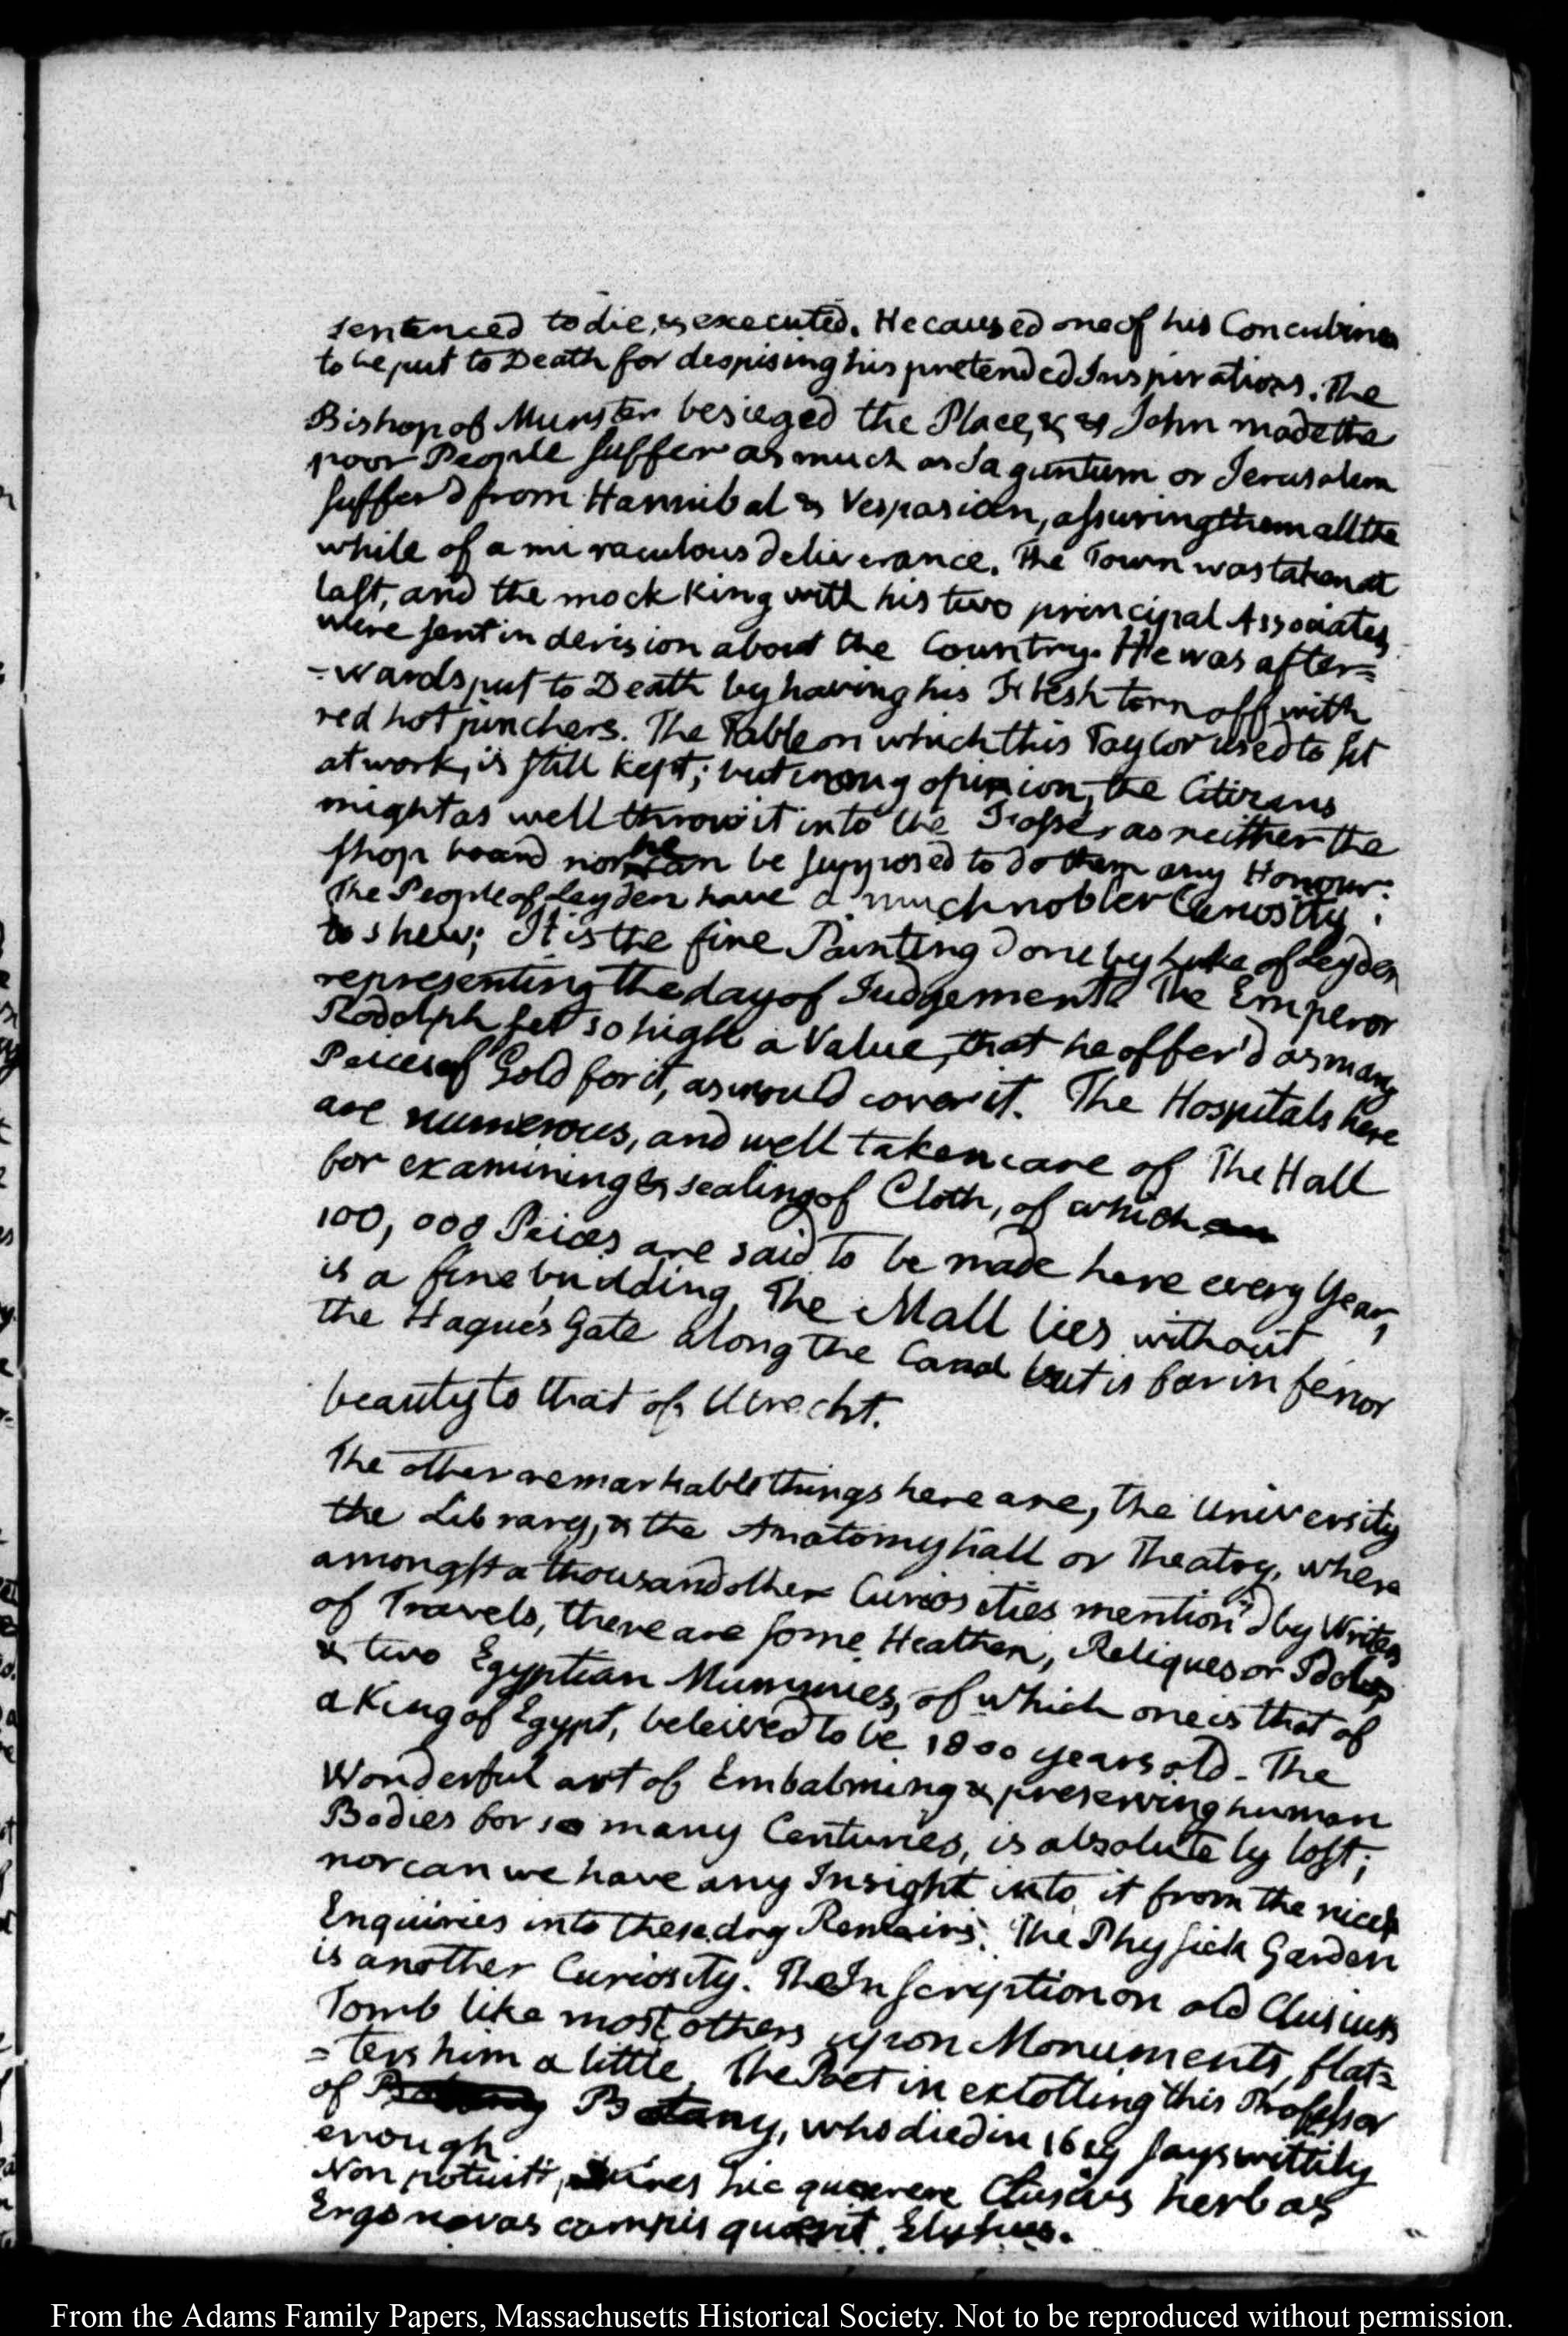 sentenced to die, & executed. He caused one of his Concubines
to be put to Death for despising his pretended Inspirations. The
Bishop of Munster besieged the Place, & John made the
poor People suffer as much as Saguntum or Jerusalem
suffer'd from Hannibal & Vespasian, assuring them all the
while of a miraculous deliverance. The Town was taken at
last, and the mock King with his two principal Associates
were sent in derision about the Country. He was after=
=wards put to Death by having his Flesh torn off with
red hot pinchers. The Table on which this Taylor used to sit
at work, is still kept; but in my opinion, the Citizens
might as well throw it into the Fosse, as neither the
shop board nor he can be supposed to do them any Honour.
The People of Leyden have a much nobler Curiosity
to shew; It is the fine Painting done by Luke of Leyden
representing the day of Judgement. The Emperor
Rodolph set so high a Value, that he offer'd as many
Peices of Gold for it, as would cover it. The Hospitals here
are numerous, and well taken care of The Hall
for examining & sealing of Cloth, of which
100,000 Peices are said to be made here every Year,
is a fine building. The Mall lies without
the Hague's Gate along the Canal but is far inferior
beauty to that of Utrecht.
The other remarkable things here are, the University
the Library, & the Anatomy hall or Theatry, where
amongst a thousand other Curiosities mention'd by Writers
of Travels, there are some Heathen, Reliques or Idols,
& two Egyptian Mummies, of which one is that of
a King of Egypt, beleived to be 1800 years old. The
Wonderful art of Embalming & preserving human
Bodies for so many Centuries, is absolutely lost;
nor can we have any Insight into it from the nicest
Enquiries into these dry Remains. The Physick Garden
is another Curiosity. The Inscription on old Clusius's
Tomb like most others upon Monuments, flat=
=ters him a little. The Poet in extolling this Professor
of Botany, who died in 1619 says wittily
enough
Non potuit, plures hic quaerere Clusius herbas
Ergo novas campis quaerit Elysiis.
From the Adams Family Papers, Massachusetts Historical Society. Not to be reproduced without permission.